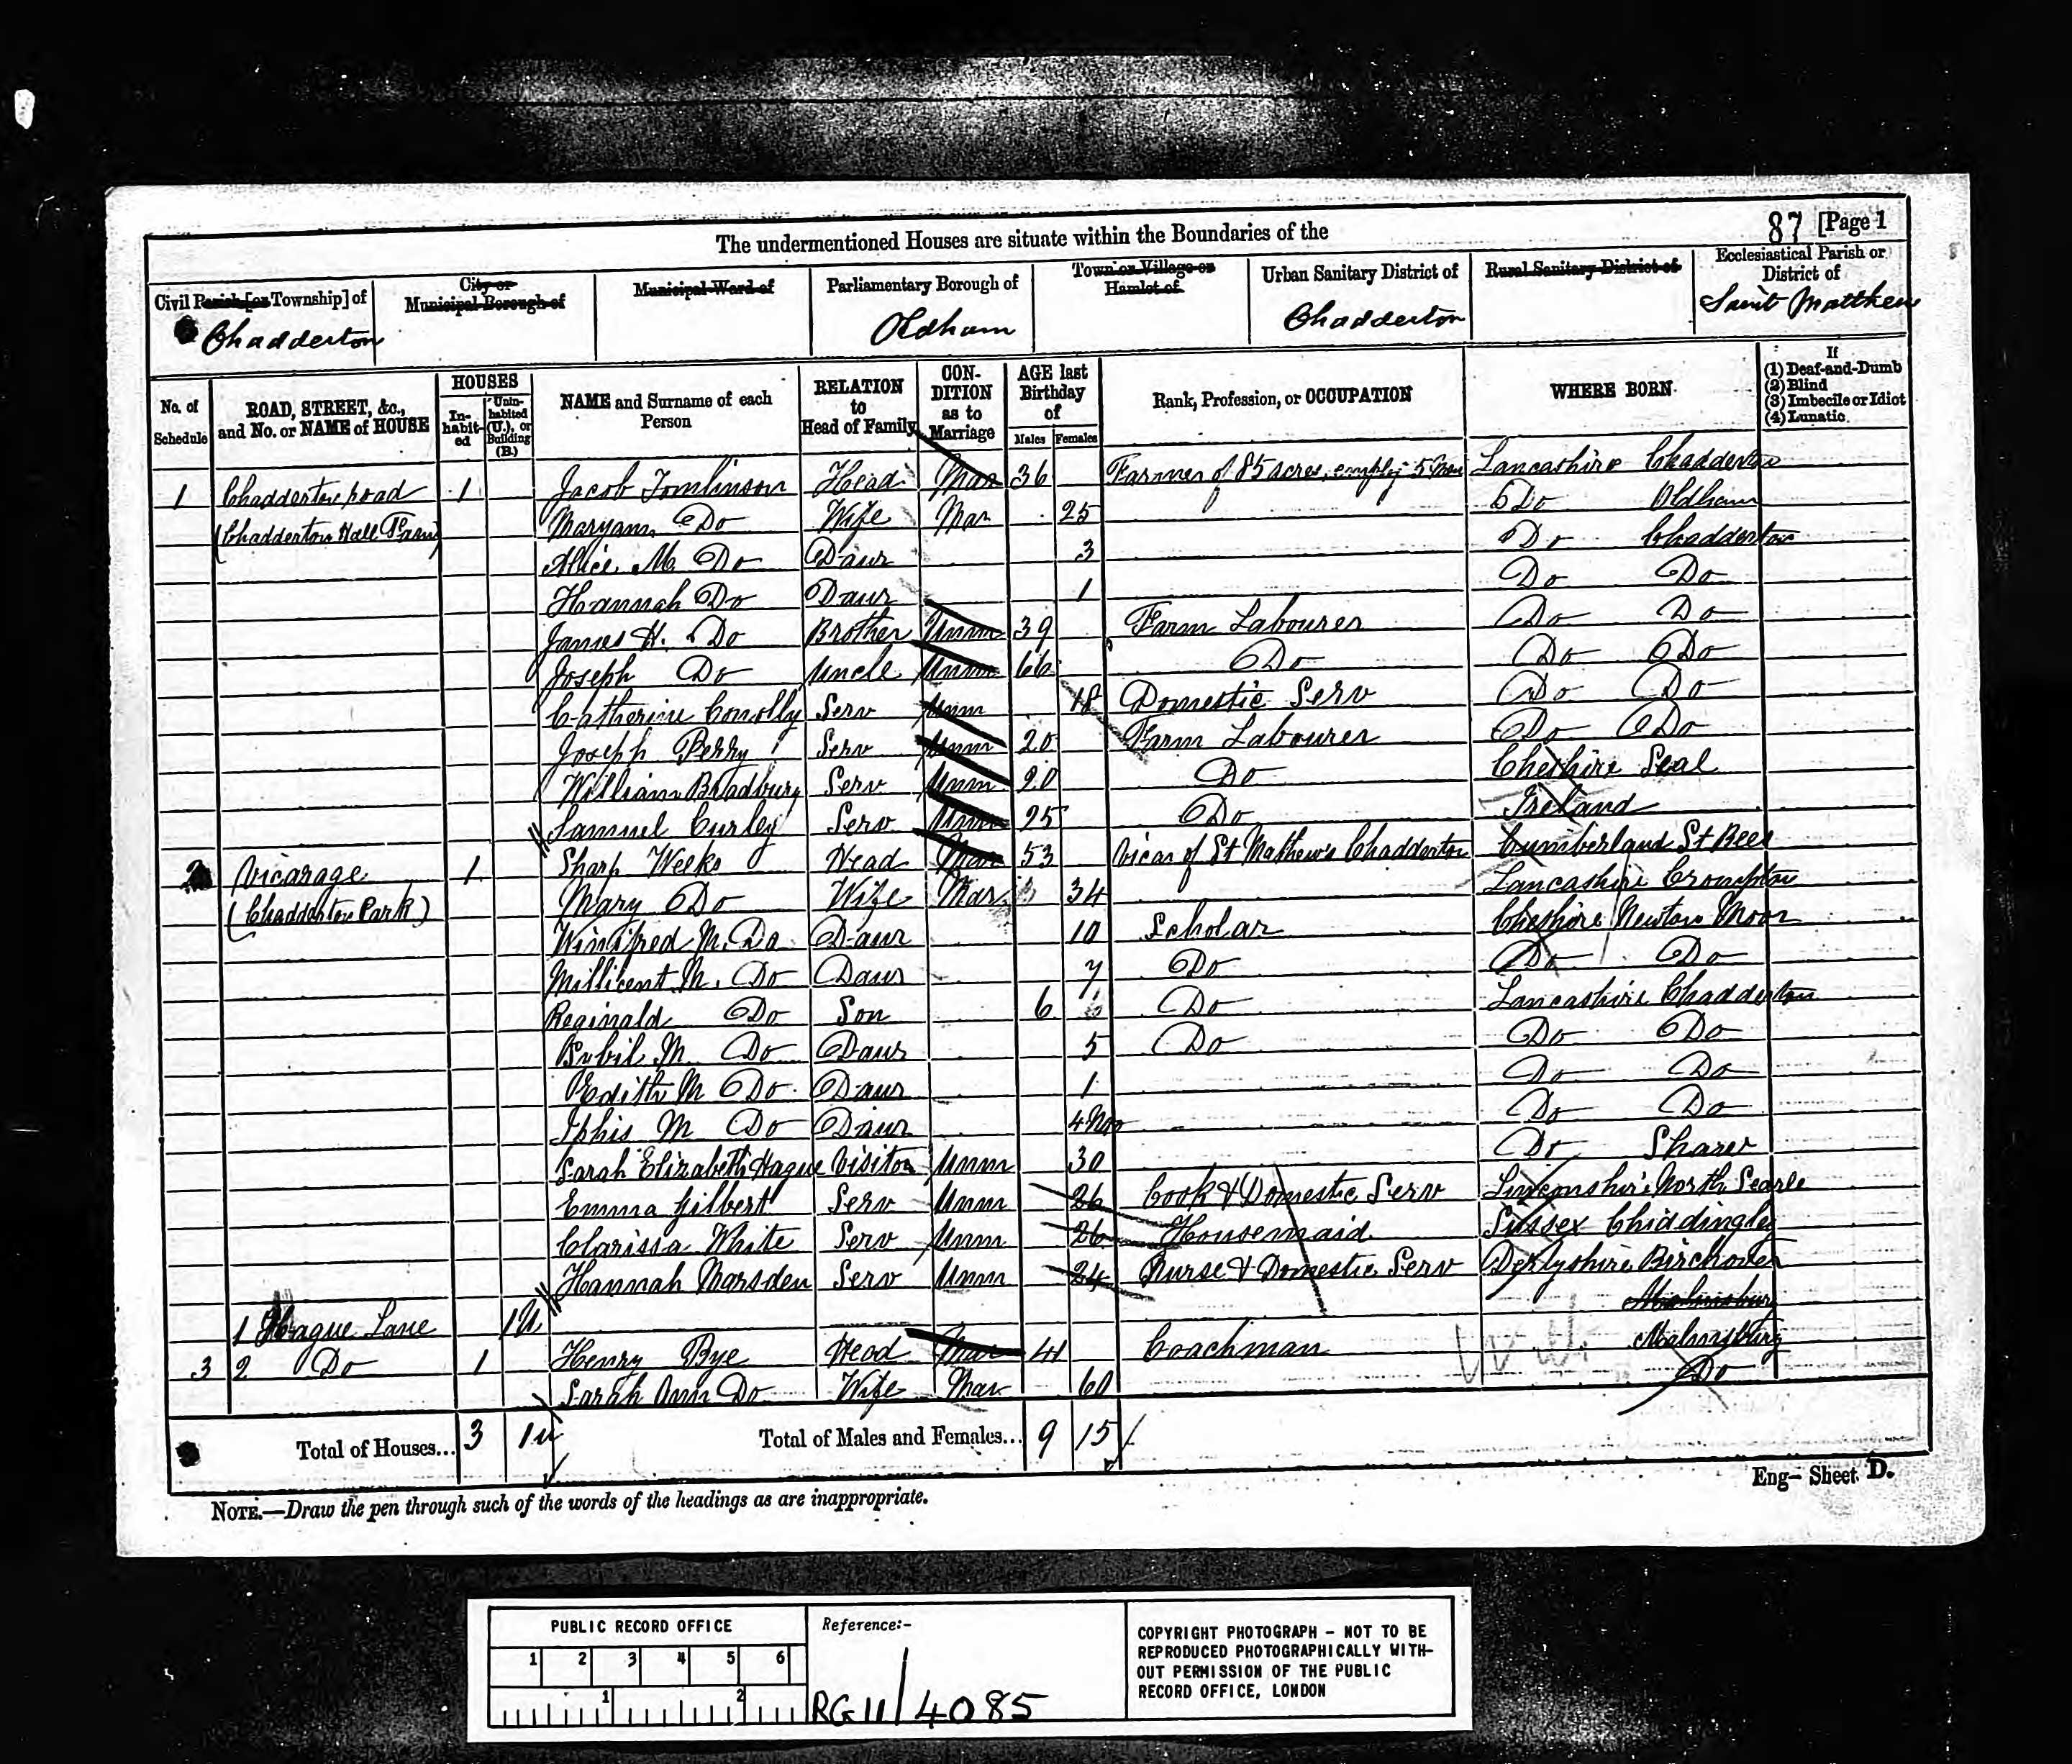 The undermentioned Houses are situate within the Boundaries of the
87 [Page 1
Civil Parish [or Township] of
Chadderton
City or Municipal Borough of
Municipal Ward of
Parliamentary Borough of
Oldham
Town or Village or Hamlet of
Urban Sanitary District of
Chadderton
Rural Sanitary District of
Ecclesiastical Parish or District of
Saint Matthew
No. of Schedule
ROAD, STREET, &c., and No. or NAME of HOUSE
HOUSES
In-habit-ed
Unin-habited (U.), or Building (B.)
NAME and Surname of each Person
RELATION to Head of Family
CON-DITION as to Marriage
AGE last Birthday of
Males Females
Rank, Profession, or OCCUPATION
WHERE BORN
If
(1) Deaf-and-Dumb
(2) Blind
(3) Imbecile or Idiot
(4) Lunatic
1 Chadderton road 1 Jacob Tomlinson Head Mar 36 Farmer of 85 acres, employ 5 Men Lancashire Chadderton
(Chadderton Hall Farm) Maryann Do Wife Mar 25 Do Oldham
Alice M. Do Daur 3 Do Chadderton
Hannah Do Daur 1 Do Do
James H. Do Brother Unm 39 Farm Labourer Do Do
Joseph Do Uncle Unm 66 Do Do Do
Catherine Conolly Serv Unm 18 Domestic Serv Do Do
Joseph Perry Serv Unm 20 Farm Labourer Do Do
William Bradbury Serv Unm 20 Do Cheshire Seal
Samuel Curley Serv Unm 25 Do Ireland
2 Vicarage 1 Sharp Weeks Head Mar 53 Vicar of St Mathew's Chadderton Cumberland St Bees
(Chadderton Park) Mary Do Wife Mar 34 Lancashire Crompton
Winifred M. Do Daur 10 Scholar Cheshire Newton Moor
Millicent M. Do Daur 7 Do Do Do
Reginald Do Son 6 Do Lancashire Chadderton
Sybil M Do Daur 5 Do Do Do
Edith M Do Daur 1 Do Do
Iphis M Do Daur 4 Mo Do Do
Sarah Elizabeth Hague Visitor Unm 30 Do Shaw
Emma Gilbert Serv Unm 26 Cook & Domestic Serv Lincolnshire North Searle
Clarissa White Serv Unm 26 Housemaid Sussex Chiddingley
Hannah Marsden Serv Unm 24 Nurse & Domestic Serv Derbyshire Birchover
1 Hague Lane 1U
3 2 Do 1 Henry Bye Head Mar 41 Coachman Malmsbury
Sarah Ann Do Wife Mar 60 Do
Total of Houses... 3 1U Total of Males and Females... 9 15
Eng— Sheet D.
NOTE.—Draw the pen through such of the words of the headings as are inappropriate.
PUBLIC RECORD OFFICE
1 2 3 4 5 6
1 2
Reference:-
RG 11/4085
COPYRIGHT PHOTOGRAPH - NOT TO BE
REPRODUCED PHOTOGRAPHICALLY WITH-
OUT PERMISSION OF THE PUBLIC
RECORD OFFICE, LONDON